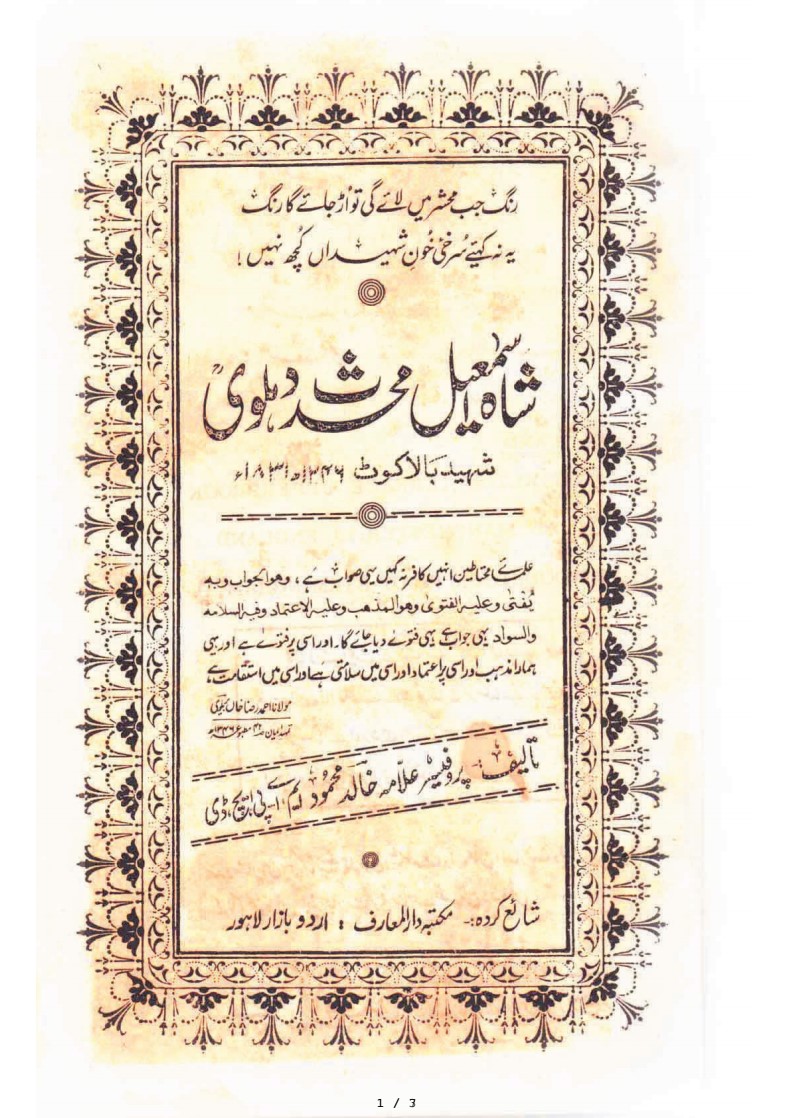 رنگ جب محشر میں لائے گی تو اُڑ جائے گا رنگ
یہ نہ کہیئے سُرخیٔ خُونِ شہیداں کُچھ نہیں!
شاہ اسمٰعیل محدث دہلوی
شہید بالاکوٹ ۱۲۴۶ھ ۱۸۳۱ء
علمائے محتاطین انہیں کافر نہ کہیں یہی صواب ہے، وھو الجواب وبہ
یُفتٰی وعلیہ الفتوی وھو المذھب وعلیہ الاعتماد وفیہ السلامہ
والسواد یہی جواب ہے یہی فتوے دیا جائے گا۔ اور اسی پر فتوے ہے اور یہی
ہمارا مذہب اور اسی پر اعتماد اور اسی میں سلامتی ہے اور اسی میں استقامت ہے
مولانا احمد رضا خاں بریلوی
تمہید ایمان ص۴۲
تالیف: پروفیسر علّامہ خالد محمود ایم اے۔ پی ایچ ڈی
شائع کردہ:۔ مکتبہ دارالمعارف : اردو بازار لاہور
1 / 3